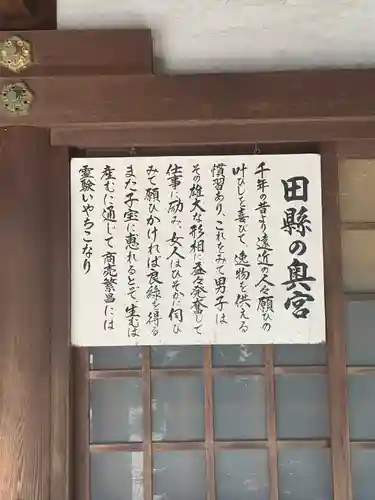 田縣の奥宮
千年の昔より遠近の人々願ひの
叶ひしを喜びて、逸物を供える
慣習あり、これをみて男子は
その雄大な形相に益々発奮して
仕事に励み、女人はひそかに伺ひ
みて願ひかければ良縁を得る
また子宝に恵れるとて、生むは
産むに通じて商売繁昌には
霊験いやちこなり